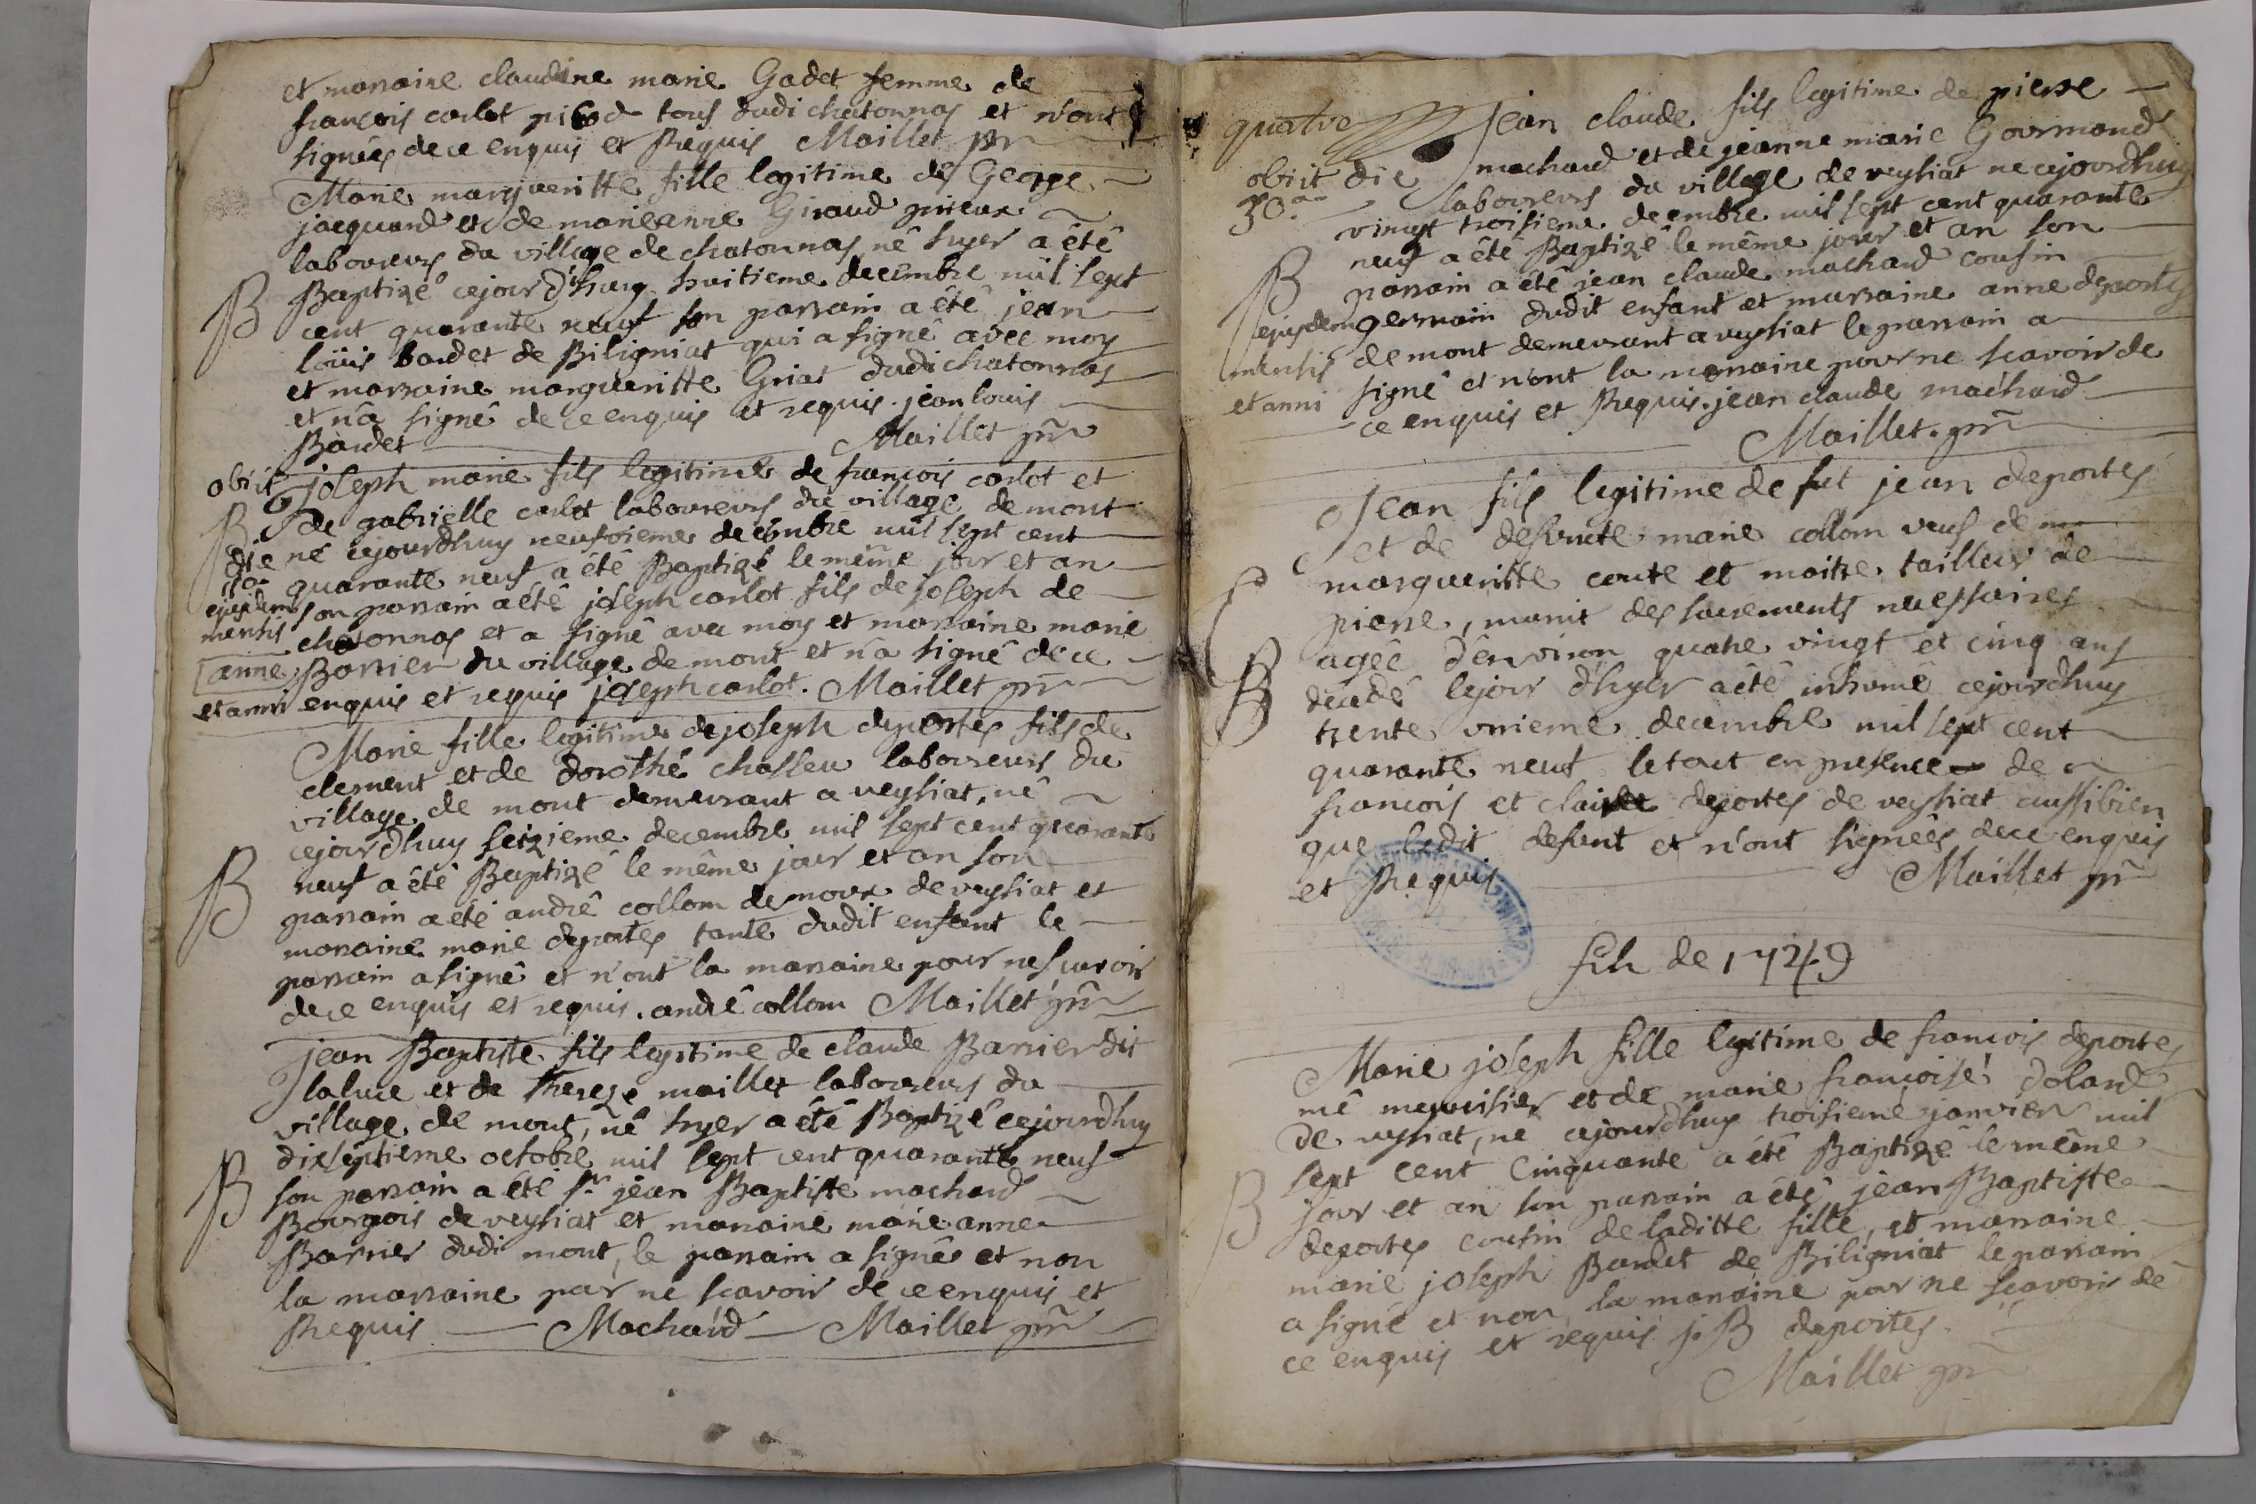 et marraine claudine marie Gadet femme de
françois carlot tous dudi chatonnas et n'ont
signées de ce enquis et Requis Maillet ptr
Marie margueritte fille legitime de George
jacquand et de marieanne Giraud
laboureurs du village de chatonnas né hyer a été
B
Baptizé cejourd'huy huitieme decembre mil sept
cent quarante neuf son parrain a été jean
loüis bardet de Biligniat qui a signé avec moy
et marraine margueritte Griat dudi chatonnas
et n'a signé de ce enquis et requis. jean louis
Bardet Maillet ptr
obiit
joseph marie fils legitime de françois carlot et
B
de gabrielle carlot laboureurs du village de mont
die
né cejourdhuy neufvieme decembre mil sept cent
quarante neuf a été Baptizé le même jour et an
ejusdem
son parrain a été joseph carlot fils de joseph de
mensis
chatonnas et a signé avec moy et marraine marie
anne Barrier du village de mont et n'a signé de ce
et anni
enquis et requis joseph carlot. Maillet ptr
Marie fille legitime de joseph deportes fils de
clement et de dorothé chasseu laboureurs du
village de mont demeurant a veysiat, né
cejourdhuy seizieme decembre mil sept cent quarante
B
neuf a été Baptizé le même jour et an son
parrain a été andré collom de veysiat et
marraine marie deportes tante dudit enfant le
parrain a signé et n'ont la marraine pour ne scavoir
de ce enquis et requis. andré collom Maillet ptr
jean Baptiste fils legitime de claude Barrier dit
lalue et de thereze maillet laboureurs du
village de mont, né hyer a été Baptizé cejourdhuy
dixseptieme octobre mil sept cent quarante neuf
B
son parrain a été sr jean Baptiste machard
Bourgois de veysiat et marraine marie anne
Barrier dudi mont, le parrain a signée et non
la marraine par ne scavoir de ce enquis et
Requis Machard Maillet ptr
quatre
Jean claude fils legitime de pierre
obiit die
machard et de jeanne marie Gourmand
30a
laboureurs du village de veysiat ne cejourdhuy
vingt troisieme decembre mil sept cent quarante
neuf a été Baptizé le même jour et an son
B
parrain a été jean claude machard cousin
ejusdem
germain dudit enfant et marraine anne deportes
mensis
de mont demeurant a veysiat le parrain a
et anni
signé et n'ont la marraine pour ne scavoir de
ce enquis et Requis. jean claude machard
Maillet. ptr
Jean fils legitime de fut jean deportes
et de defunte marie collom veuf de
margueritte coute et maitre tailleur de
pierre, munit des sacrements necessaires
agée d'environ quatre vingt et cinq ans
decedé lejour d'hyer a été inhumé cejourdhuy
trente unieme decembre mil sept cent
quarante neuf le tout en presence de
francois et claude deportes de veysiat aussibien
que ledit defunt et n'ont signées de ce enquis
et Requis Maillet ptr
fih de 1749
Marie joseph fille legitime de françois deportes
mê menuisier et de marie françoise dolard
de veysiat, né cejourdhuy troisieme janvier mil
sept cent Cinquante a été Baptizé le même
B
jour et an son parrain a été jean Baptiste
deportes cousin de laditte fille, et marraine
marie joseph Bardet de Biligniat le parrain
a signé et non la marraine par ne scavoir de
ce enquis et requis j. B deportes
Maillet ptr